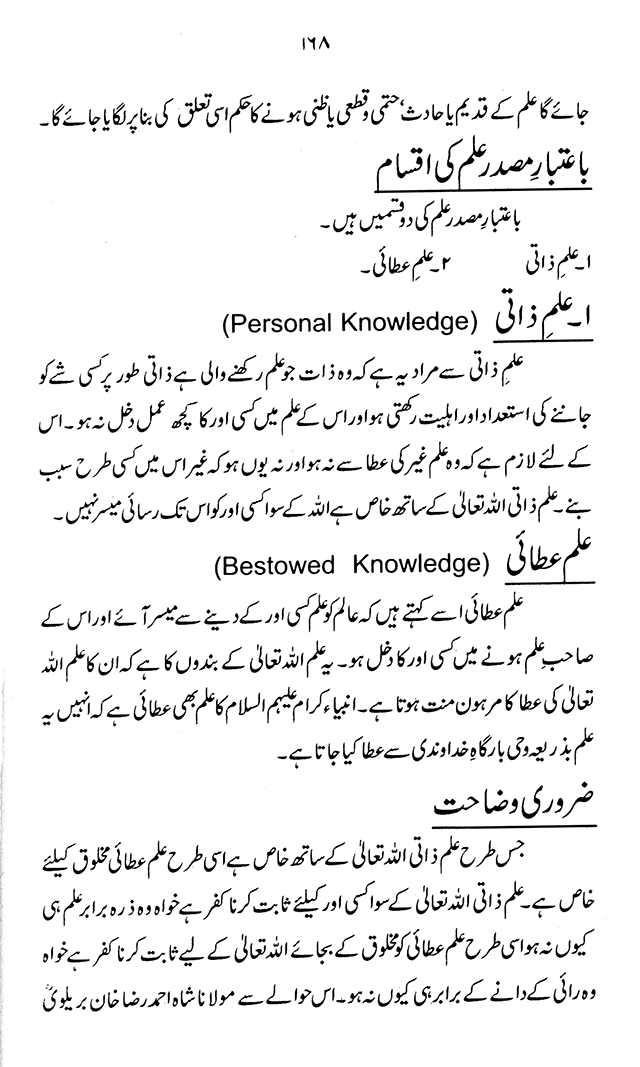 ۱۶۸
جائے گا علم کے قدیم یا حادث‘ حتمی و قطعی یا ظنی ہونے کا حکم اسی تعلق کی بنا پر لگایا جائے گا۔
باعتبارِ مصدر علم کی اقسام
باعتبارِ مصدر علم کی دو قسمیں ہیں۔
۱۔علمِ ذاتی ۲۔علمِ عطائی۔
۱۔علمِ ذاتی (Personal Knowledge)
علمِ ذاتی سے مراد یہ ہے کہ وہ ذات جو علم رکھنے والی ہے ذاتی طور پر کسی شے کو
جاننے کی استعداد اور اہلیت رکھتی ہو اور اس کے علم میں کسی اور کا کچھ عمل دخل نہ ہو۔ اس
کے لئے لازم ہے کہ وہ علم غیر کی عطا سے نہ ہو اور نہ یوں ہو کہ غیر اس میں کسی طرح سبب
بنے۔ علم ذاتی اللہ تعالیٰ کے ساتھ خاص ہے اللہ کے سوا کسی اور کو اس تک رسائی میسر نہیں۔
علم عطائی (Bestowed Knowledge)
علم عطائی اسے کہتے ہیں کہ عالم کو علم کسی اور کے دینے سے میسر آئے اور اس کے
صاحبِ علم ہونے میں کسی اور کا دخل ہو۔ یہ علم اللہ تعالیٰ کے بندوں کا ہے کہ ان کا علم اللہ
تعالیٰ کی عطا کا مرہون منت ہوتا ہے۔ انبیاء کرام علیہم السلام کا علم بھی عطائی ہے کہ انہیں یہ
علم بذریعہ وحی بارگاہِ خداوندی سے عطا کیا جاتا ہے۔
ضروری وضاحت
جس طرح علم ذاتی اللہ تعالیٰ کے ساتھ خاص ہے اسی طرح علم عطائی مخلوق کیلئے
خاص ہے۔ علم ذاتی اللہ تعالیٰ کے سوا کسی اور کیلئے ثابت کرنا کفر ہے خواہ وہ ذرہ برابر علم ہی
کیوں نہ ہو اسی طرح علم عطائی کو مخلوق کے بجائے اللہ تعالیٰ کے لیے ثابت کرنا کفر ہے خواہ
وہ رائی کے دانے کے برابر ہی کیوں نہ ہو۔ اس حوالے سے مولانا شاہ احمد رضا خان بریلویؒ